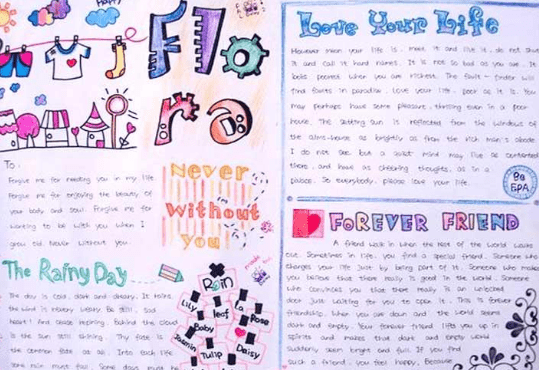 Happy
Flo
ra
To:
Forgive me for needing you in my life
Forgive me for enjoying the beauty of
your body and soul. Forgive me for
wanting to be with you when I
grow old Never without you.
Never
without
you
The Rainy Day
The day is cold, dark and dreary. It rains,
the wind is never weary. Be still, sad
heart! And cease repining. Behind the cloud
is the sun still shining. Thy fate is
the common fate of all. Into each life
some rain must fall. Some days must be
Rain
Lily
leaf
la
Rose
Baby
Jasmin
Tulip
Daisy
Love Your Life
However mean your life is, meet it and live it, do not shun
it and call it hard names. It is not so bad as you are. It
looks poorest when you are richest. The fault-finder will
find faults in paradise. Love your life, poor as it is. You
may perhaps have some pleasant, thrilling even in a poor
house. The setting sun is reflected from the windows of
the alms-house as brightly as from the rich man's abode
I do not see but a quiet mind may live as contented
there, and have as cheering thoughts, as in a
palace. So everybody, please love your life.
FOREVER FRIEND
A friend walk in when the rest of the world walks
out. Sometimes in life, you find a special friend. Someone who
changes your life just by being part of it. Someone who makes
you believe that there really is good in the world. Someone
who convinces you that there really is an unlocked
door just waiting for you to open it. This is forever
friendship. When you are down and the world seems
dark and empty. Your forever friend lifts you up in
spirits and makes that dark and empty world
suddenly seem bright and full. If you find
such a friend, you feel happy. Because